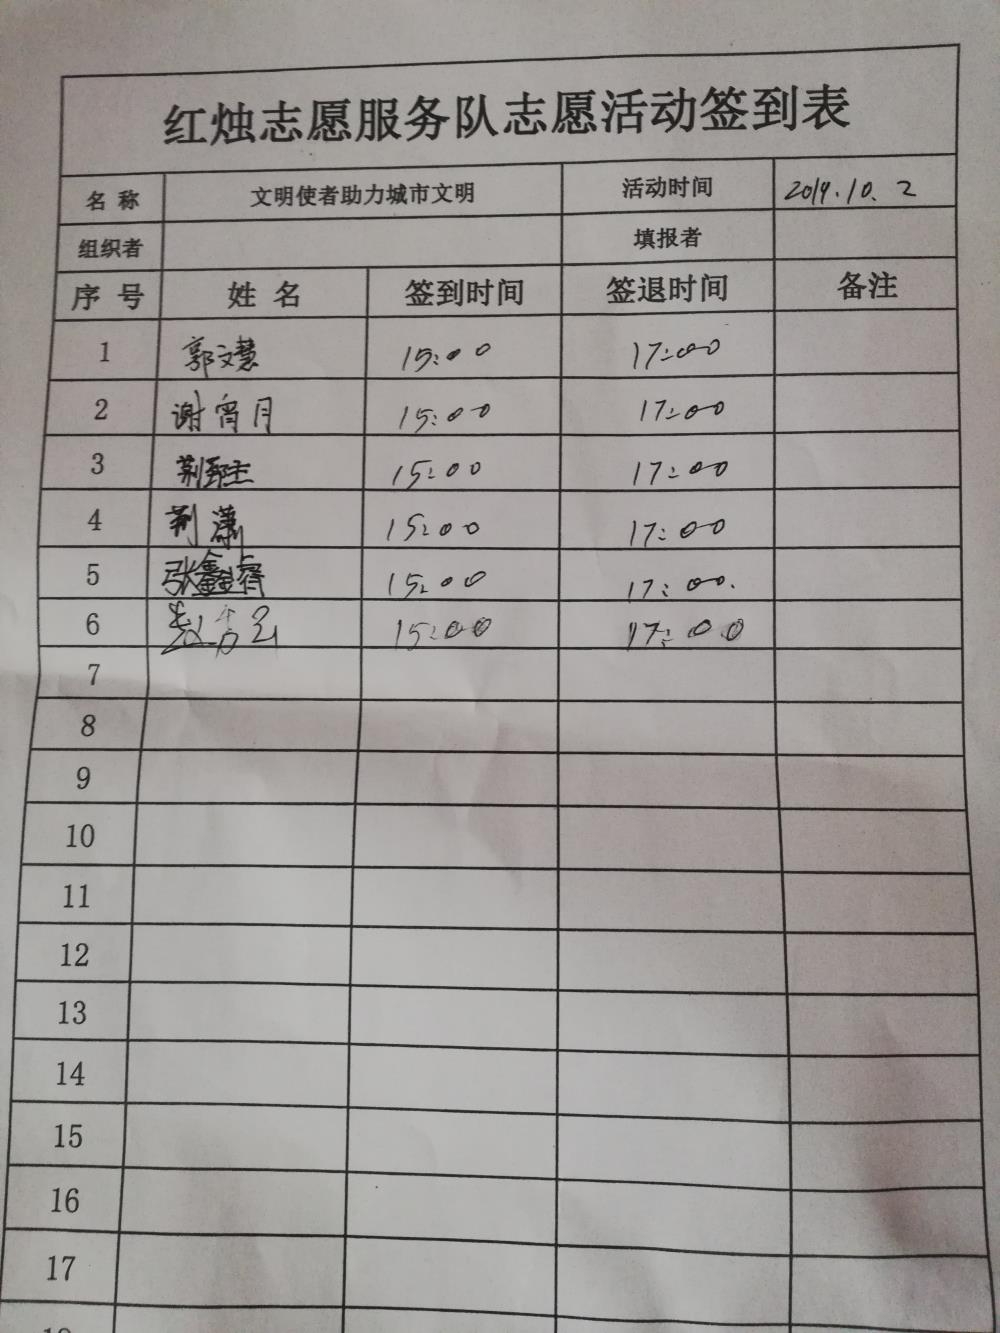 红烛志愿服务队志愿活动签到表
名 称 文明使者助力城市文明 活动时间 2019.10.2
组织者 填报者
序 号 姓 名 签到时间 签退时间 备注
1 郭文慧 15:00 17:00
2 谢宵月 15:00 17:00
3 15:00 17:00
4 荆潇 15:00 17:00
5 张鑫睿 15:00 17:00.
6 15:00 17:00
7
8
9
10
11
12
13
14
15
16
17